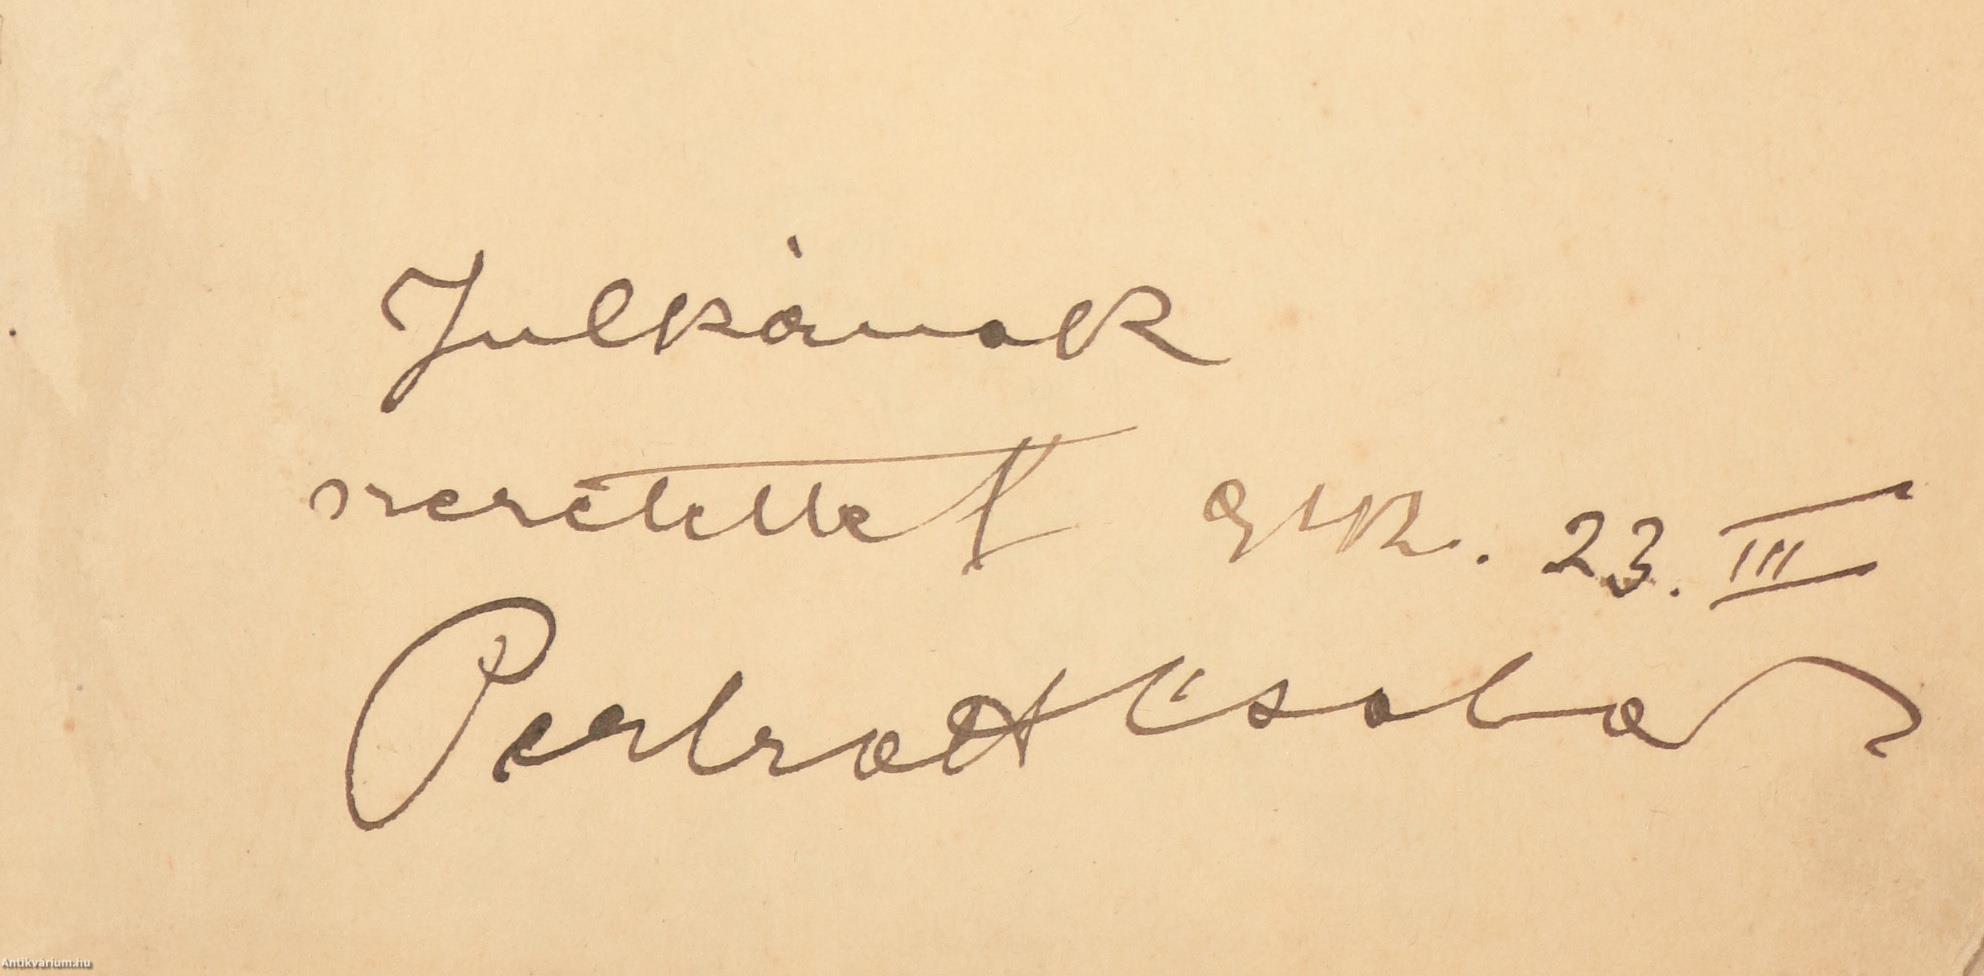 Julkának
szeretettel 23. III
Perlrott Csaba
Antikvarium.hu